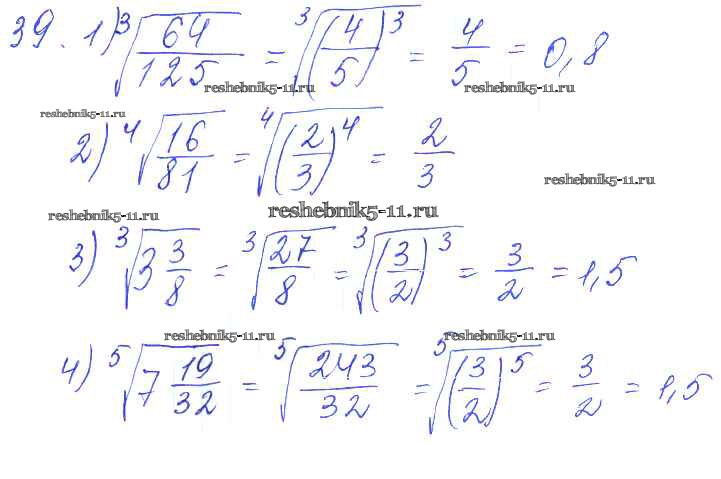 39. 1) ∛(64/125) = ∛((4/5)^3) = 4/5 = 0,8
reshebnik5-11.ru reshebnik5-11.ru
reshebnik5-11.ru
2) ∜(16/81) = ∜((2/3)^4) = 2/3
reshebnik5-11.ru
reshebnik5-11.ru
reshebnik5-11.ru
3) ∛(3 3/8) = ∛(27/8) = ∛((3/2)^3) = 3/2 = 1,5
reshebnik5-11.ru reshebnik5-11.ru
4) ⁵√(7 19/32) = ⁵√(243/32) = ⁵√((3/2)^5) = 3/2 = 1,5